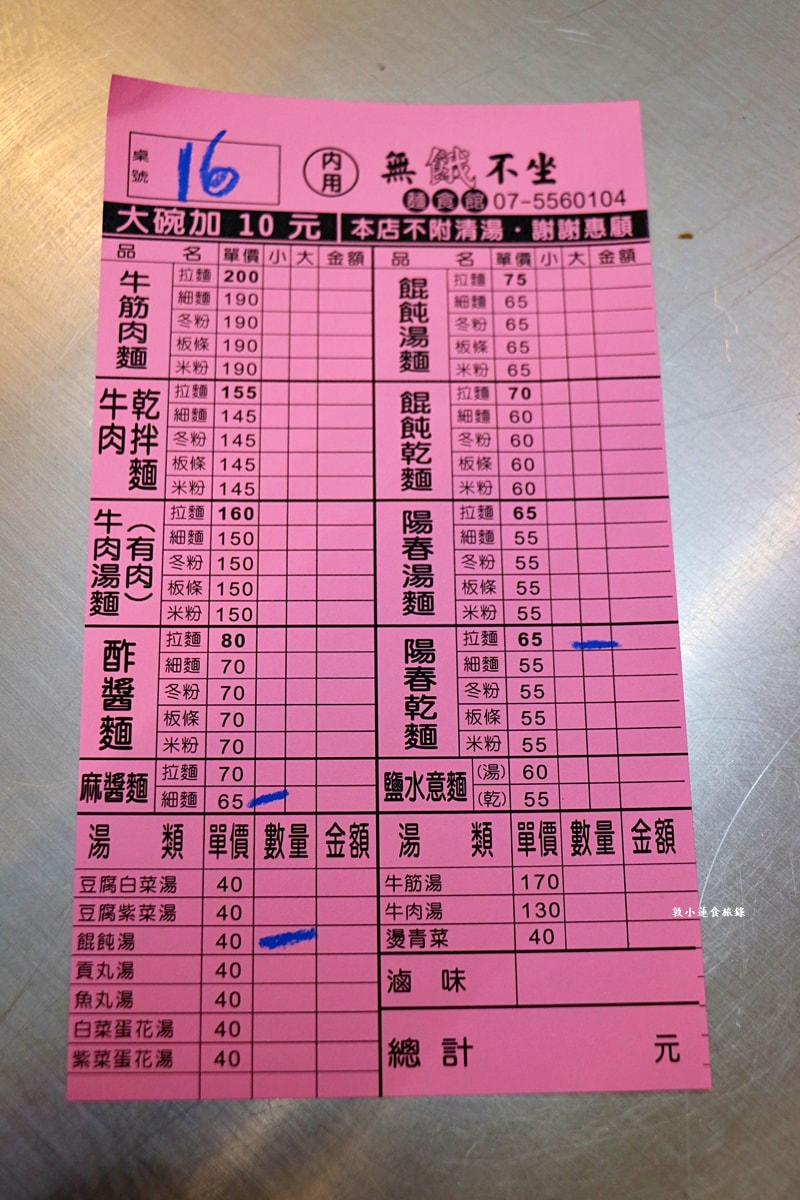 桌號 16
內用
無餓不坐
麵食館 07-5560104
大碗加 10 元 本店不附清湯・謝謝惠顧
品 名 單價 小 大 金額
牛筋肉麵
拉麵 200
細麵 190
冬粉 190
板條 190
米粉 190
牛肉乾拌麵
拉麵 155
細麵 145
冬粉 145
板條 145
米粉 145
牛肉湯麵（有肉）
拉麵 160
細麵 150
冬粉 150
板條 150
米粉 150
酢醬麵
拉麵 80
細麵 70
冬粉 70
板條 70
米粉 70
麻醬麵
拉麵 70
細麵 65
湯 類 單價 數量 金額
豆腐白菜湯 40
豆腐紫菜湯 40
餛飩湯 40
貢丸湯 40
魚丸湯 40
白菜蛋花湯 40
紫菜蛋花湯 40
品 名 單價 小 大 金額
餛飩湯麵
拉麵 75
細麵 65
冬粉 65
板條 65
米粉 65
餛飩乾麵
拉麵 70
細麵 60
冬粉 60
板條 60
米粉 60
陽春湯麵
拉麵 65
細麵 55
冬粉 55
板條 55
米粉 55
陽春乾麵
拉麵 65
細麵 55
冬粉 55
板條 55
米粉 55
鹽水意麵
(湯) 60
(乾) 55
湯 類 單價 數量 金額
牛筋湯 170
牛肉湯 130
燙青菜 40
滷 味
總 計 元
敦小蓮食旅錄